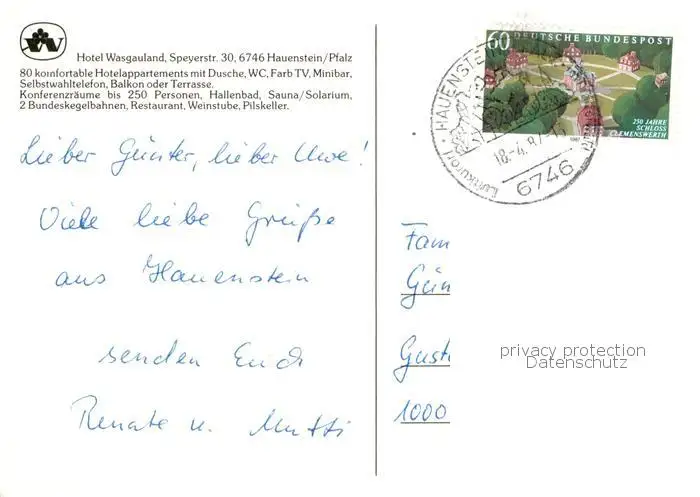 Hotel Wasgauland, Speyerstr. 30, 6746 Hauenstein/Pfalz
80 komfortable Hotelappartements mit Dusche, WC, Farb TV, Minibar,
Selbstwahltelefon, Balkon oder Terrasse.
Konferenzräume bis 250 Personen, Hallenbad, Sauna/Solarium,
2 Bundeskegelbahnen, Restaurant, Weinstube, Pilskeller.
60 DEUTSCHE BUNDESPOST
250 JAHRE
SCHLOSS
CLEMENSWERTH
Luftkurort · HAUENSTEIN
18.-4.87
6746
Lieber Günter, lieber Uwe!
Viele liebe Grüße
aus Hauenstein
senden Euch
Renate u. Mutti
Fam
Gün
Gust
1000
privacy protection
Datenschutz